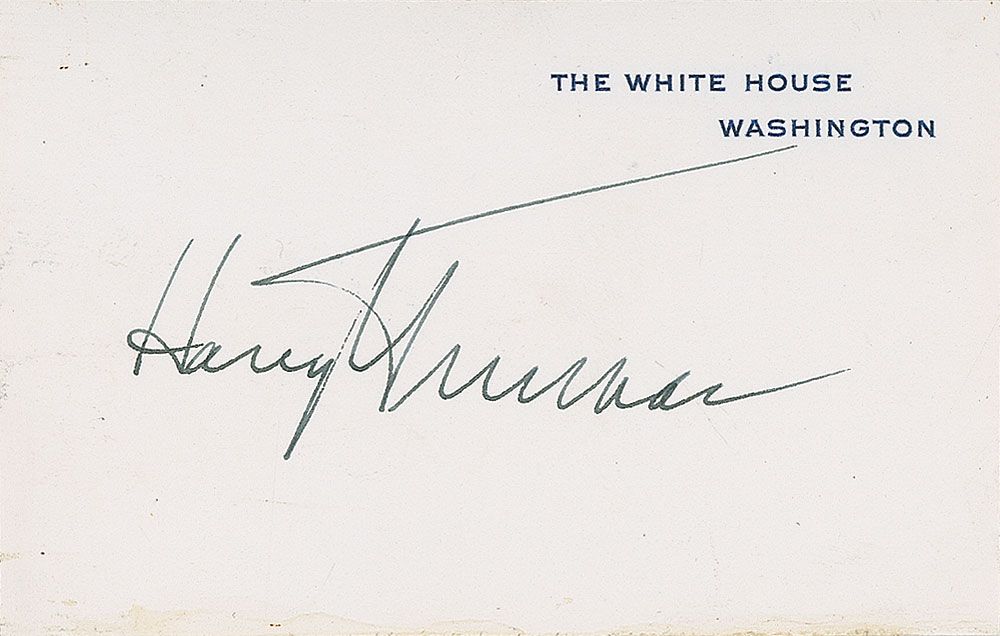 THE WHITE HOUSE
WASHINGTON
Harry S Truman